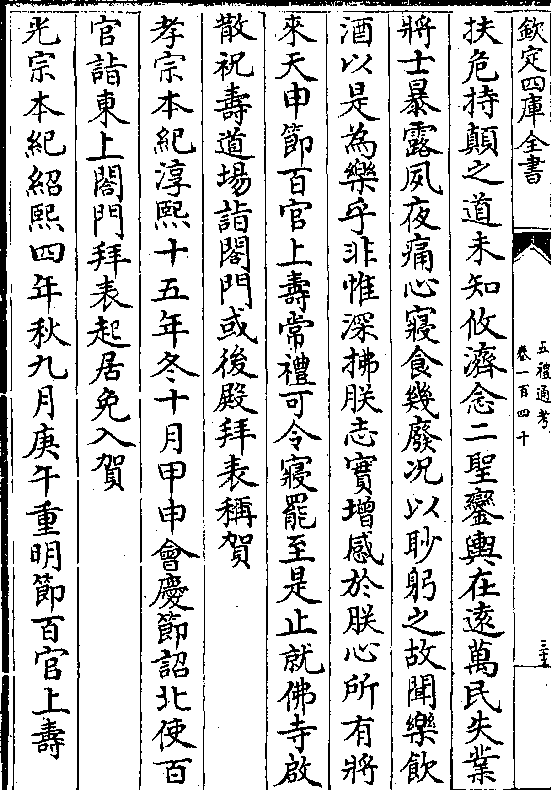 欽定四庫全書
五禮通考
卷一百四十
三十五
扶危持顛之道未知攸濟念二聖鑾輿在逺萬民失業
將士暴露夙夜痛心寢食幾廢况以眇躬之故聞樂飲
酒以是為樂乎非惟深拂朕志實增感於朕心所有將
來天申節百官上壽常禮可令寢罷至是止就佛寺啟
散祝壽道場詣閤門或後殿拜表稱賀
孝宗本紀淳熙十五年冬十月甲申會慶節詔北使百
官詣東上閤門拜表起居免入賀
光宗本紀紹熙四年秋九月庚午重明節百官上壽